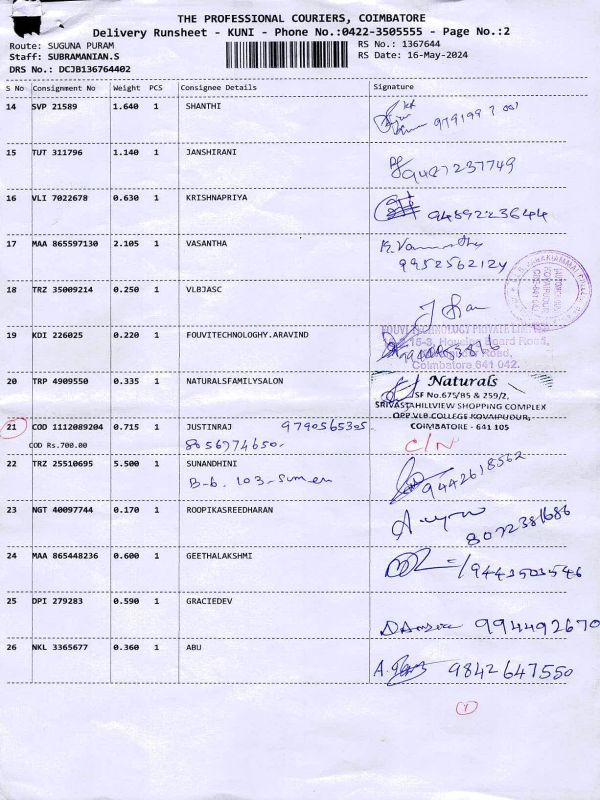 THE PROFESSIONAL COURIERS, COIMBATORE
Delivery Runsheet - KUNI - Phone No.:0422-3505555 - Page No.:2
Route: SUGUNA PURAM RS No.: 1367644
Staff: SUBRAMANIAN.S RS Date: 16-May-2024
DRS No.: DCJB136764402
S No Consignment No Weight PCS Consignee Details Signature
14 SVP 21589 1.640 1 SHANTHI
15 TUT 311796 1.140 1 JANSHIRANI
9487237749
16 VLI 7022678 0.630 1 KRISHNAPRIYA
9489223644
17 MAA 865597130 2.105 1 VASANTHA
9952562124
18 TRZ 35009214 0.250 1 VLBJASC
19 KDI 226025 0.220 1 FOUVITECHNOLOGHY.ARAVIND
FOUVI TECHNOLOGY PRIVATE LIMITED
Board Road,
Road,
Coimbatore 641 042.
20 TRP 4909550 0.335 1 NATURALSFAMILYSALON
Naturals
SF No.675/B5 & 259/2,
SRIVASTAHILLVIEW SHOPPING COMPLEX
OPP VLB COLLEGE KOVAIPUDUR,
COIMBATORE - 641 105
21 COD 1112089204 0.715 1 JUSTINRAJ 9790565305
COD Rs.700.00 8056774650 C/N
22 TRZ 25510695 5.500 1 SUNANDHINI 9442618562
B-6. 103-
23 NGT 40097744 0.170 1 ROOPIKASREEDHARAN
8072381686
24 MAA 865448236 0.600 1 GEETHALAKSHMI
9443503546
25 DPI 279283 0.590 1 GRACIEDEV
994492670
26 NKL 3365677 0.360 1 ABU
9842647550